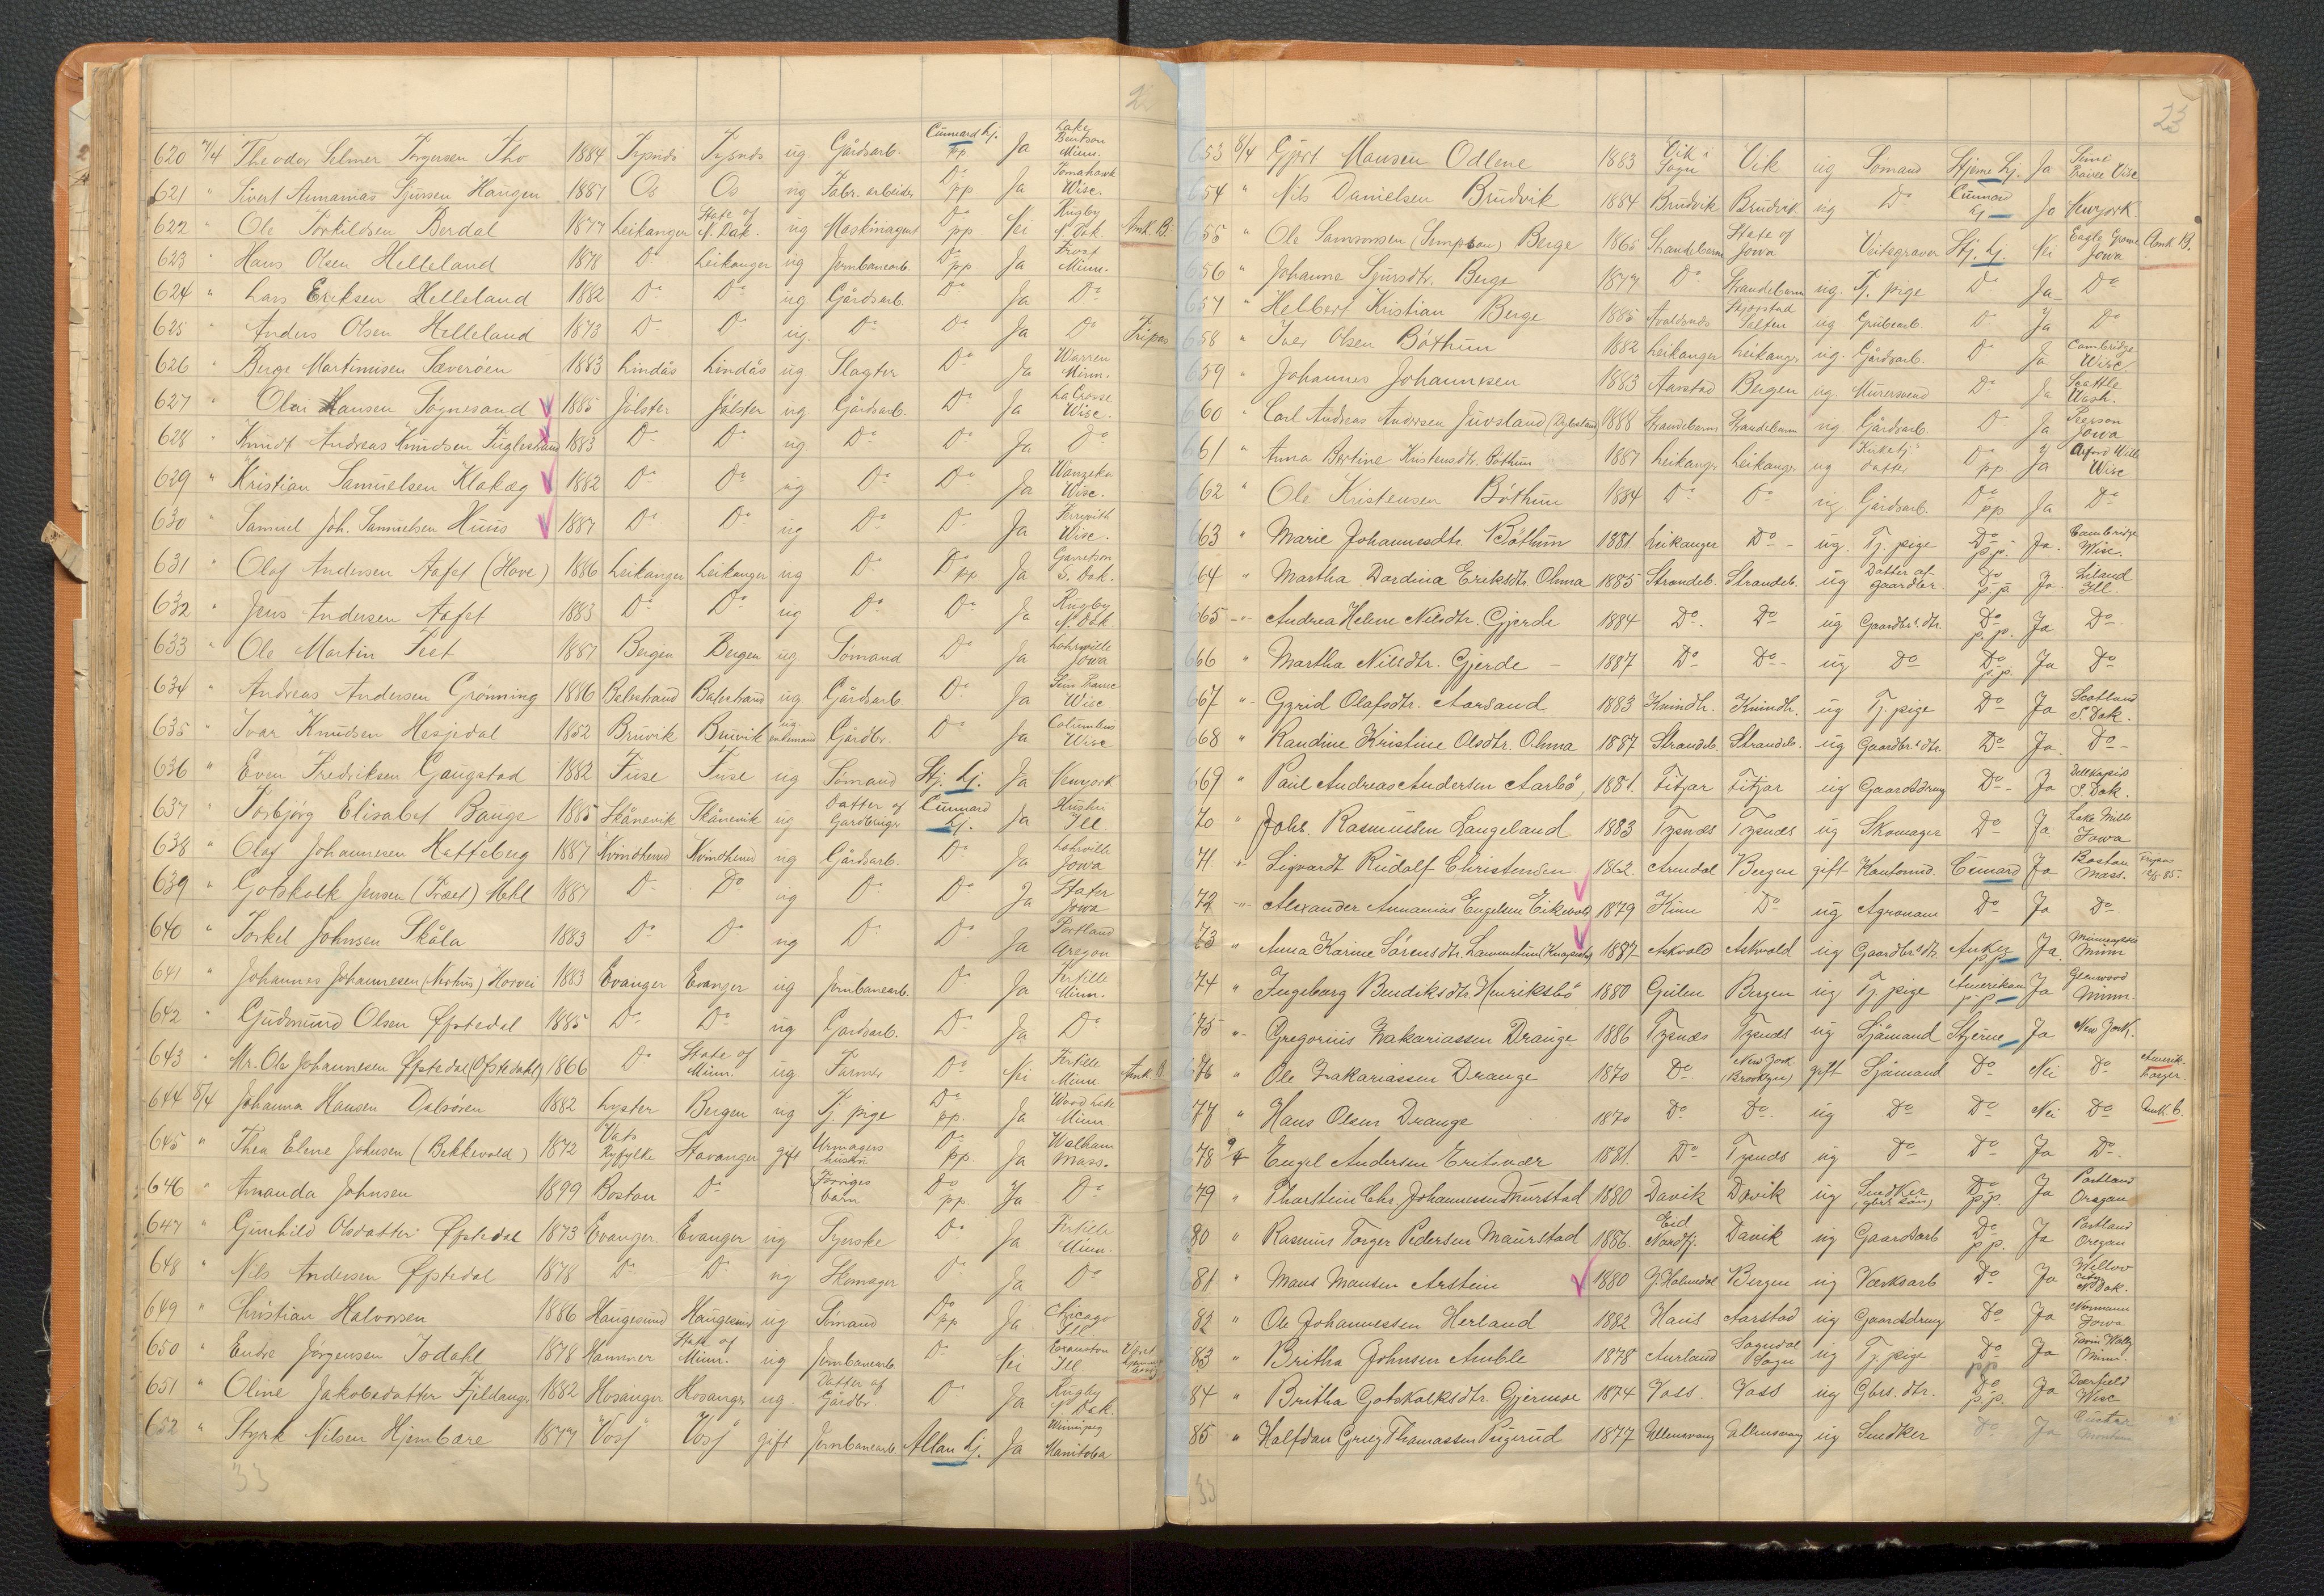 2
620 7/4 Theodor Selmer Torgersen Tho 1884 Tysnæs Tysnæs ug Gårdsarb. Cunnard Lj. pp Ja Lake Bentson Minn.
621 " Sivert Annanias Sjursen Haugen 1887 Os Os ug Fabr. arbeider Do pp Ja Tomahawk Wisc.
622 " Ole Torkildsen Berdal 1877 Leikanger State of N. Dak. ug Maskinagent Do pp. Nei Rugby N. Dak. Amk. B.
623 " Hans Olsen Helleland 1878 Do Leikanger ug Jernbanearb. Do pp. Ja Frost Minn.
624 " Lars Eriksen Helleland 1882 Do Do ug Gårdsarb. Do Ja Do
625 " Anders Olsen Helleland 1873 Do Do ug. Do Do Ja Do Fripas
626 " Berge Martinusen Sæverøen 1883 Lindås Lindås ug. Slagter Do Ja Warren Minn.
627 " Olai Hansen Søgnesand 1885 Jølster Jølster ug Gårdsarb. Do Ja La Crosse Wisc.
628 " Knudt Andreas Knudsen Fuglestrand 1883 Do Do ug Do Do Ja Do
629 " Kristian Samuelsen Klakæg 1882 Do Do ug Do Do Ja Wauzeka Wisc.
630 " Samuel Joh. Samuelsen Huus 1887 Do Do ug Do Do Ja Wisc.
631 " Olaf Andersen Aafet (Hove) 1886 Leikanger Leikanger ug Do Do pp Ja Garretson S. Dak.
632 " Jens Andersen Aafet 1883 Do Do ug Do Do Ja Rugby N. Dak.
633 " Ole Martin Teet 1887 Bergen Bergen ug Sømand Do Ja Lohrville Jowa
634 " Andreas Andersen Grønning 1886 Balestrand Balestrand ug Gårdsarb. Do Ja Wisc.
635 " Ivar Knudsen Hesjedal 1852 Bruvik Bruvik ug. enkemand Gårdbr. Do Ja Columbus Wisc
636 " Even Fredriksen Gaugstad 1882 Fuse Fuse ug Sømand Stj. Lj. Ja Newyork
637 " Torbjørg Elisabet Bauge 1885 Skånevik Skånevik ug Datter af Gardbruger Cunnard Lj. Ja Ill
638 " Olaf Johannesen Hatteberg 1887 Kvindherred Kvindherred ug Gårdsarb. Do Ja Lohrville Jowa
639 " Gotskalk Jensen (Træet) Mehl 1887 Do Do ug Do Do Ja Slater Jowa
640 " Torkel Johnsen Skåla 1883 Do Do ug Do Do Ja Portland Oregon
641 " Johannes Johannesen (Nesthus) Horvei 1883 Evanger Evanger ug Jernbanearb. Do Ja Fertille Minn.
642 " Gudmund Olsen Øfstedal 1885 Do Do ug Gardsarb. Do Ja Do
643 " Mr. Ole Johannesen Øfstedal (Ofstedahl) 1866 Do State of Minn. ug Farmer Do Nei Fertille Minn Amk. B
644 8/4 Johanna Hansen Dalsøren 1882 Lyster Bergen ug Tj. pige Do pp. Ja Wood Lake Minn.
645 " Thea Elene Johnsen (Bekkevold) 1872 Vats Ryfylke Stavanger gift Urmagers hustru Do pp. Ja Waltham Mass.
646 " Amanda Johnsen 1899 Boston Do Forriges barn Do pp. Ja Do
647 " Gunhild Olsdatter Øfstedal 1873 Evanger Evanger ug Syerske Do Ja Fertille Minn.
648 " Nils Andersen Øfstedal 1878 Do Do ug Skomager Do Ja Do
649 " Kristian Halvorsen 1886 Haugesund Haugesund ug Sømand Do pp Ja Chicago Ill.
650 " Endre Jørgensen Jodahl 1878 Hammer State of Minn. ug Jernbanearb. Do Nei Evanston Ill
651 " Oline Jakobsdatter Fjeldanger 1882 Hosanger Hosanger ug Datter af Gårdbr. Do Ja Rugby N. Dak.
652 " Styrk Nilsen Hjembære 1877 Voss Voss gift Jernbanearb. Allan Lj. Ja Winnipeg Manitoba
33
23
653 8/4 Gjert Mansen Odlene 1883 Vik i Sogn Vik ug Sømand Stjerne Lj. Ja Wisc
654 " Nils Danielsen Brudvik 1884 Brudvik Brudvik ug Do Cunnard Lj Ja Newyork
655 " Ole Samsonsen (Sempson) Berge 1865 Strandebarm State of Jowa Veitegraver Stj. Lj. Nei Eagle Grove Jowa Amk. B.
656 " Johanna Sjursdtr. Berge 1877 Do Strandebarm ug. Tj. pige Do Ja Do
657 " Helbert Kristian Berge 1885 Avaldsnæs Salten ug Grubearb. Do Ja Do
658 " Iver Olsen Bøthun 1882 Leikanger Leikanger ug. Gårdsarb. Do Ja Cambridge Wisc
659 " Johannes Johannesen 1883 Aarstad Bergen ug. Murersvend Do Ja Seattle Wash.
660 " Carl Andreas Andersen Juvsland 1888 Strandebarm Strandebarm ug Gårdsarb. Do Ja Pierson Jowa
661 " Anna Bertine Kristensdtr. Bøthun 1887 Leikanger Leikanger ug Kirketj. datter Do pp Ja Wisc
662 " Ole Kristensen Bøthun 1884 Do Do ug Gårdsarb. Do pp Ja Do
663 " Marie Johannesdtr. Bøthun 1881. Leikanger Do ug. Tj. pige Do p.p. Ja. Cambridge Wisc.
664 " Martha Dardina Eriksdtr. Ohma 1885 Strandeb. Strandeb. ug Datter af gaardbr. Do p.p. Ja. Leland Ill.
665 " Andrea Helene Nilsdtr. Gjerde 1884 Do. Do ug Gaardbr's dtr. Do p.p. Ja Do
666 " Martha Nilsdtr. Gjerde 1887 Do Do ug Do Do p.p. Ja Do
667 " Gyrid Olafsdtr. Aarsand 1883 Kvindh. Kvindh. ug Tj. pige Do Ja Scotland S. Dak.
668 " Randine Kristine Olsdtr. Ohma 1887 Strandeb. Strandeb. ug Gaardbr's dtr. Do Ja. Do
669 " Paul Andreas Andersen Aarbø, 1881. Fitjar Fitjar ug Gaardsdreng Do Ja Dellrapids S. Dak.
670 " Johs. Rasmussen Langeland 1883 Tysnæs Tysnæs ug Skomager Do Ja Lake Mills Jowa
671 " Sigvardt Rudolf Christensen 1862. Arendal Bergen gift Kantormd. Cunard Ja Boston Mass. Fripas
672 " Alexander Annanias Engelsen Eikevold 1879 Kinn Do ug Agronom Do Ja Do
673 " Anna Karine Sørensdtr. Lammetun 1887 Askvold Askvold ug Gaardbr's dtr. Anker p.p. Ja. Minneapolis Minn
674 " Ingeborg Bendiksdtr. Henriksbø 1880 Gulen Bergen ug Tj. pige Amerikan p.p. Ja Glenwood Minn.
675 " Gregorius Zakariassen Drange 1886 Tysnæs Tysnæs ug Sjømand Stjerne Ja New York.
676 " Ole Zakariassen Drange 1870 Do New York (Brooklyn) gift Sjømand Do Nei Do Amerik. borger
677 " Hans Olsen Drange 1870 Do Do. ug Do Do Nei Do Amk. b.
678 9/4 Engel Andersen Eritsvær 1881. Do Tysnæs ug Do Do Ja Do.
679 " Tharstein Chr. Johannessen Maurstad 1880 Davik Davik ug Snedker Do p.p. Ja Portland Oregon
680 " Rasmus Torger Pedersen Maurstad 1886. Eid Nordfj. Davik ug Gaardsarb Do p.p. Ja Portland Oregon
681 " Mons Monsen Arstein 1880 Y. Holmedal Bergen ug Værksarb Do Ja Willow City N. Dak.
682 " Ole Johannessen Herland 1882. Haus Aarstad ug Gaardsdreng Do Ja Jowa
683 " Britha Johnsen Amble 1878 Aurland Sogndal Sogn ug Tj. pige Do p.p. Ja Minn.
684 " Britha Gotskalksdtr. Gjernæs 1874 Voss. Voss ug Gbrs. dtr. Do p.p. Ja Deerfield Wisc
685 " Halfdan Grieg Thomassen Pugerud 1877 Ullensvang Ullensvang ug Snedker Do Ja
33